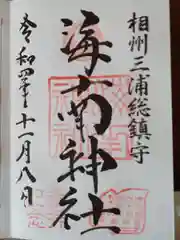 相州三浦総鎮守
海南神社
令和四年十一月八日